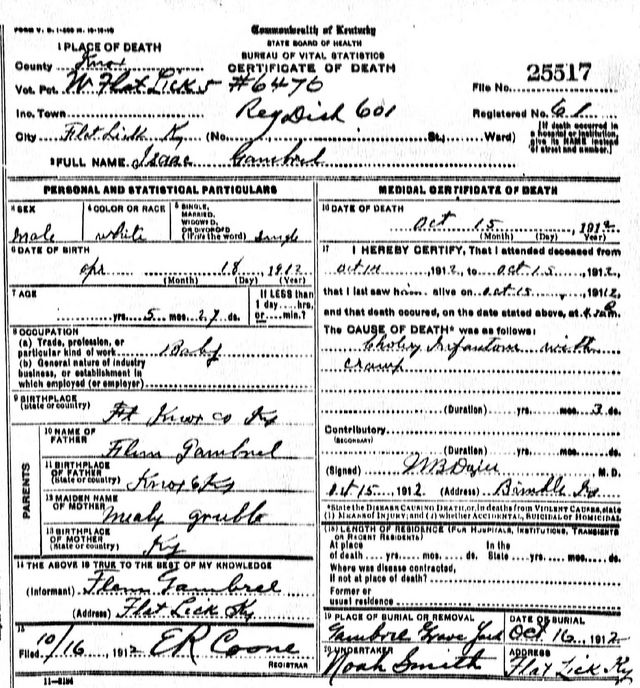 FORM V. S. 1-
Commonwealth of Kentucky
STATE BOARD OF HEALTH
BUREAU OF VITAL STATISTICS
CERTIFICATE OF DEATH
1 PLACE OF DEATH
County Knox
Vot. Pct. W Flat Lick 5 #6470
File No. 25517
Inc. Town Reg Dist 601
Registered No. 61
City Flat Lick Ky (No. St., Ward)
[If death occurred in a hospital or institution, give its NAME instead of street and number.]
2 FULL NAME Isaac Gambrel
PERSONAL AND STATISTICAL PARTICULARS
3 SEX
male
4 COLOR OR RACE
white
5 SINGLE, MARRIED, WIDOWED, OR DIVORCED (Write the word) Single
6 DATE OF BIRTH
Apr 18, 1912
(Month) (Day) (Year)
7 AGE
yrs. 5 mos. 27 ds.
If LESS than 1 day....hrs. or....min.?
8 OCCUPATION
(a) Trade, profession, or particular kind of work Baby
(b) General nature of industry business, or establishment in which employed (or employer)
9 BIRTHPLACE
(State or country)
Knox co Ky
PARENTS
10 NAME OF FATHER
Flem Gambrel
11 BIRTHPLACE OF FATHER
(State or country) Knox Ky
12 MAIDEN NAME OF MOTHER
Mealy
13 BIRTHPLACE OF MOTHER
(State or country) Ky
14 THE ABOVE IS TRUE TO THE BEST OF MY KNOWLEDGE
(Informant) Flem Gambrel
(Address) Flat Lick Ky
15
Filed 10/16, 1912 ER Coone
REGISTRAR
11-3184
MEDICAL CERTIFICATE OF DEATH
16 DATE OF DEATH
Oct 15, 1912
(Month) (Day) (Year)
17 I HEREBY CERTIFY, That I attended deceased from
Oct 14 1912, to Oct 15, 1912,
that I last saw him alive on Oct 15 1912,
and that death occured, on the date stated above, at
The CAUSE OF DEATH* was as follows:
Infantum with
cramp
(Duration) yrs. mos. 3 ds.
Contributory
(SECONDARY)
(Duration) yrs. mos. ds.
(Signed) M.D.
Oct 15, 1912 (Address) Ky
*State the DISEASE CAUSING DEATH, or, in deaths from VIOLENT CAUSES, state (1) MEANS OF INJURY; and (2) whether ACCIDENTAL, SUICIDAL OR HOMICIDAL
18 LENGTH OF RESIDENCE (FOR HOSPITALS, INSTITUTIONS, TRANSIENTS OR RECENT RESIDENTS)
At place of death....yrs....mos....ds. In the State....yrs....mos....ds.
Where was disease contracted, if not at place of death?
Former or usual residence
19 PLACE OF BURIAL OR REMOVAL
Grave Yard
DATE OF BURIAL
Oct 16, 1912
20 UNDERTAKER
Noah Smith
ADDRESS
Flat Lick Ky